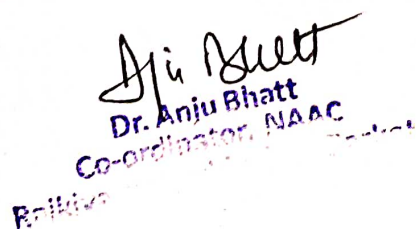 Anju Bhatt
Dr. Anju Bhatt
Co-ordinator, NAAC